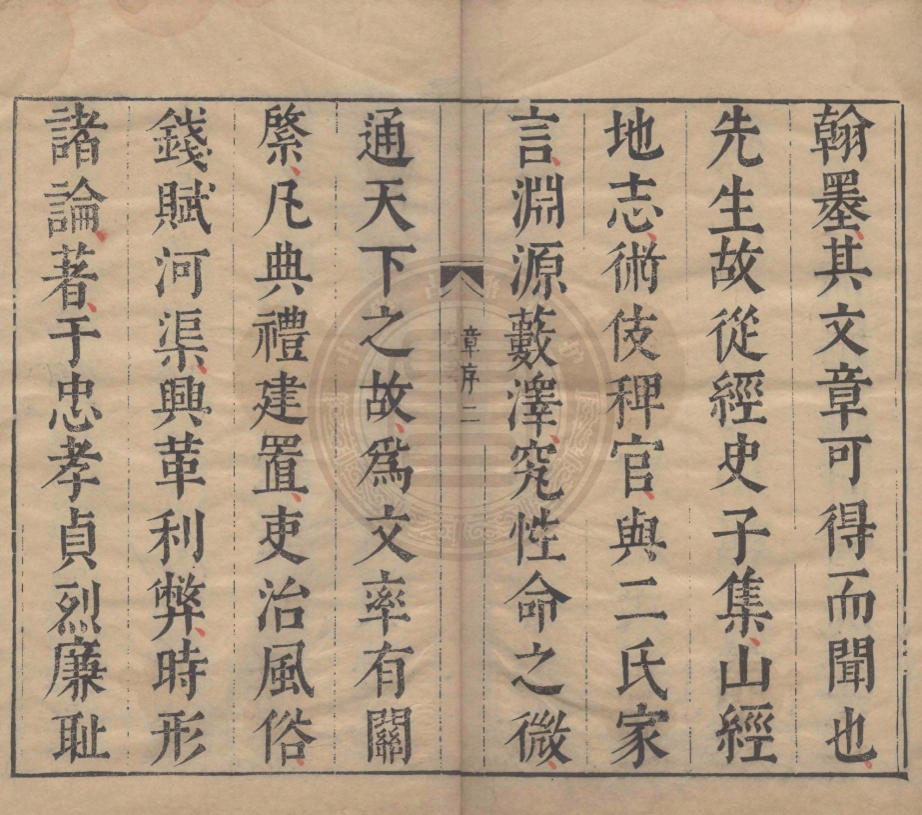 翰墨其文章可得而聞也
先生故從經史子集山經
地志術伎稗官與二氏家
言淵源藪澤究性命之微
章序二
通天下之故為文率有關
綮凡典禮建置吏治風俗
錢賦河渠興革利弊時形
諸論著于忠孝貞烈廉耻